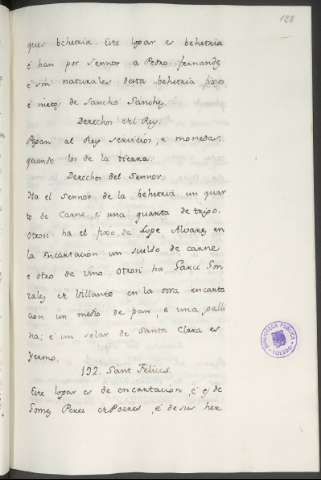 128
que; behetria. Este logar es behetria
é han por Sennor a Pedro fernande
é son naturales desta behetria fijos
é nietos de Sancho Sanchez.
Derechos del Rey.
Pagan al Rey servicios, e monedas,
quando los de la tierra.
Derechos del Sennor.
Ha el Sennor de la behetria un quar
to de Carne, é una quarta de trigo.
Otrosi ha el fijo de Lope Alvarez en
la encartacion un sueldo de carne
e otro de vino otrosi ha Garci Gon
zalez de Villanto en la otra encarta
cion un medio de pan e una galli
na; e un solar de Santa Clara es
yermo.
192. Sant Felices.
Este logar es de encartacion, é es de
Gomez Perez de Porres, é de sus her
BIBLIOTECA PÚBLICA
TOLEDO